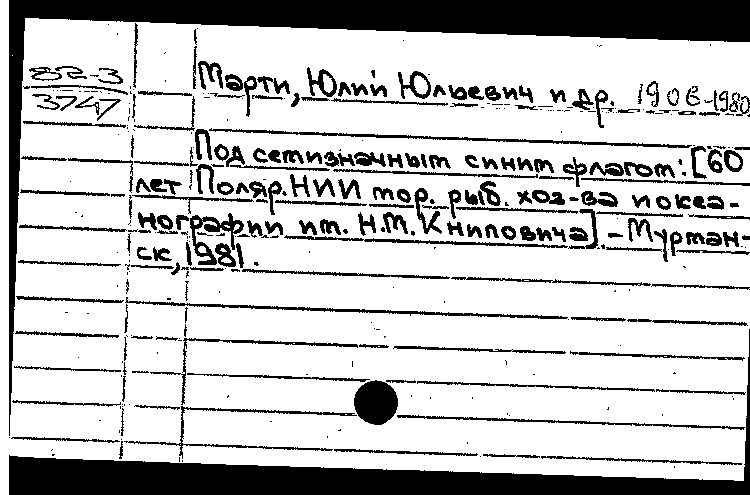 82-3
3747
Марти, Юлий Юльевич и др. 1906-1980
Под семизначным синим флагом: [60
лет Поляр. НИИ мор. рыб. хоз-ва и океа-
нографии им. Н.М. Книповича]. - Мурман-
ск, 1981.